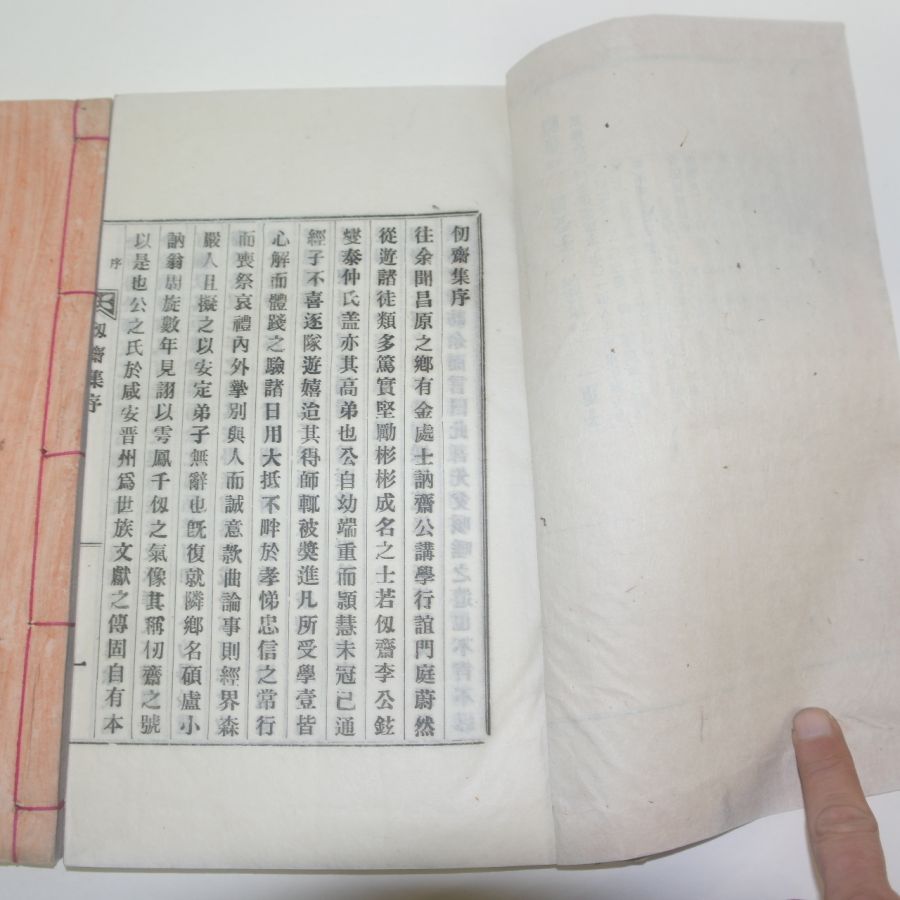 仞齋集序
往余聞昌原之鄕有金處士訥齋公講學行誼門庭蔚然
從遊諸徒類多篤實堅勵彬彬成名之士若仞齋李公鉉
燮泰仲氏盖亦其高弟也公自幼端重而顥慧未冠已通
經子不喜逐隊遊嬉迨其得師輒被奬進凡所受學壹皆
心解而體踐之驗諸日用大抵不畔於孝悌忠信之常行
而喪祭哀禮內外摯別與人而誠意款曲論事則經界森
嚴人且擬之以安定弟子無辭也旣復就隣鄕名碩盧小
訥翁周旋數年見詡以雩鳳千仞之氣像其稱仞齋之號
以是也公之氏於咸安晋州爲世族文獻之傳固自有本
序
仞齋集序
一